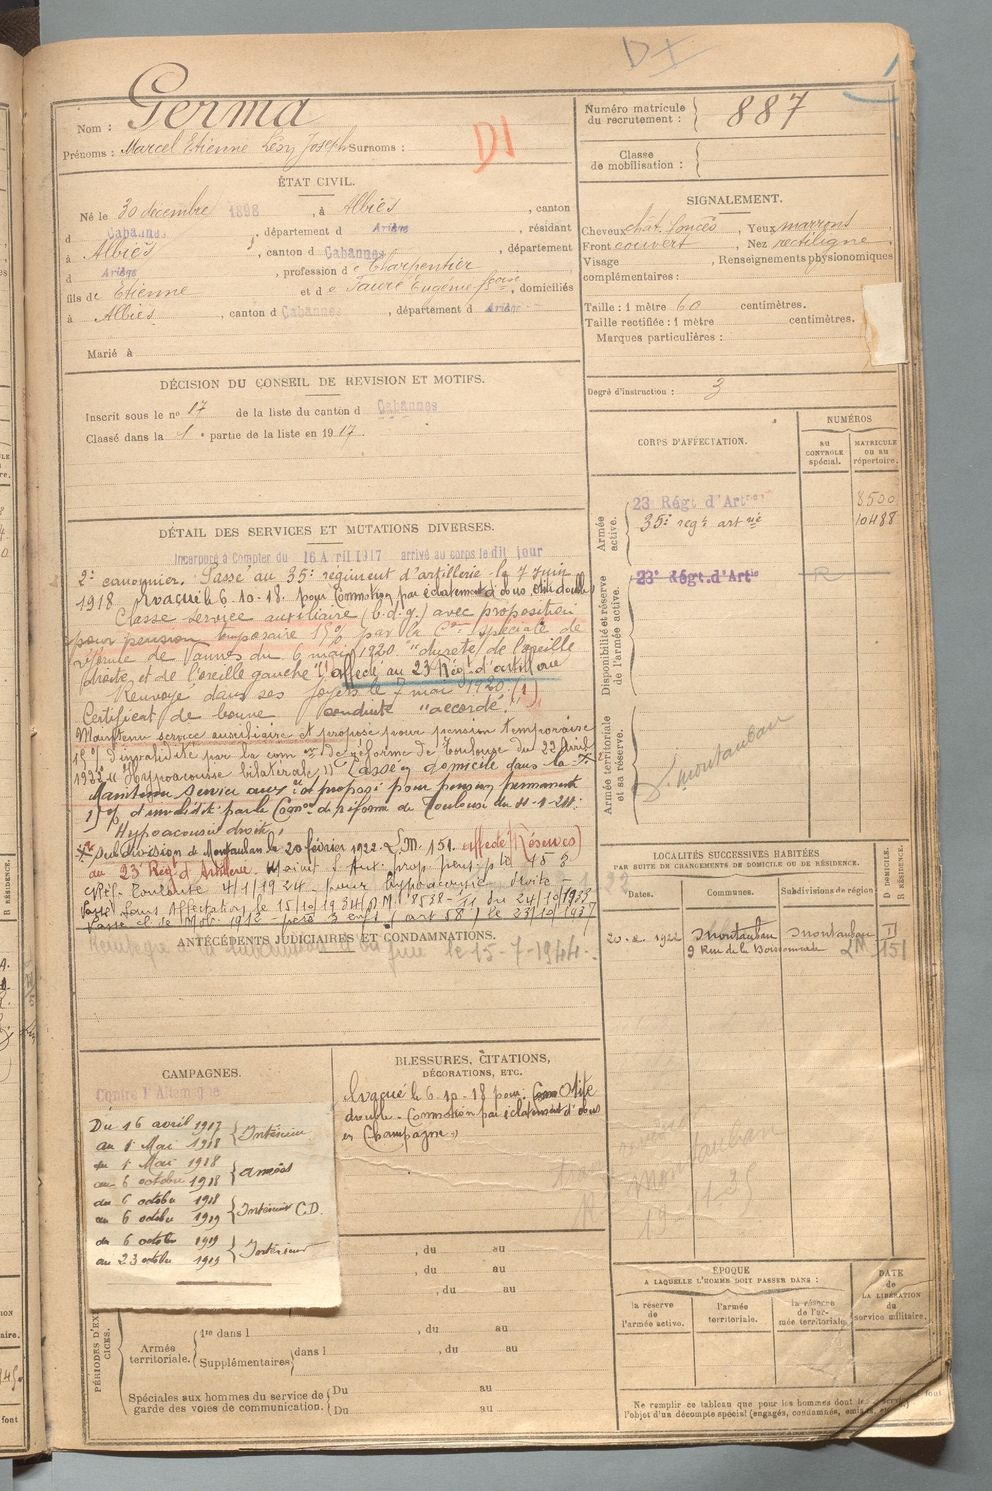 D I
Nom : Germa
Prénoms : Marcel Etienne Lézy Joseph Surnoms :
D1
Numéro matricule du recrutement : 887
Classe de mobilisation :
ÉTAT CIVIL.
Né le 30 décembre 1898, à Albiès, canton
d Cabannes, département d Ariège, résidant
à Albiès, canton d Cabannes, département
d Ariège, profession de Charpentier
fils de Etienne et de Faure Eugénie fçoise, domiciliés
à Albiès, canton d Cabannes, département d Ariège
Marié à
SIGNALEMENT.
Cheveux chât. foncés, Yeux marrons
Front couvert, Nez rectiligne
Visage, Renseignements physionomiques
complémentaires :
Taille : 1 mètre 60 centimètres.
Taille rectifiée : 1 mètre centimètres.
Marques particulières :
Degré d'instruction : 3
DÉCISION DU CONSEIL DE REVISION ET MOTIFS.
Inscrit sous le n° 17 de la liste du canton d Cabannes
Classé dans la 1e partie de la liste en 1917.
CORPS D'AFFECTATION.
NUMÉROS
AU CONTRÔLE spécial.
MATRICULE ou au répertoire.
Armée active.
23 Régt d'Artie 8500
35e regt artrie 10488
Disponibilité et réserve de l'armée active.
23e Régt. d'Artie R
Armée territoriale et sa réserve.
S. Montauban
DÉTAIL DES SERVICES ET MUTATIONS DIVERSES.
Incorporé à Compter du 16 Avril 1917 arrivé au corps le dit jour
2e canonnier. Passé au 35e régiment d'artillerie le 7 juin
1918 Evacué le 6-10-18. pour Commotion par éclatement d'obus otite double
Classé service auxiliaire (b.d.g) avec proposition
pour pension temporaire 15% par la Con spéciale de
réforme de Vannes du 6 mai 1920 "dureté de l'oreille
droite et de l'oreille gauche" (1) affecté au 23 Régt d'artillerie
Renvoyé dans ses foyers le 7 mai 1920. (1)
Certificat de bonne conduite "accordé".
Maintenu service auxiliaire et proposé pour pension temporaire
15% d'invalidité par la com on de réforme de Toulouse du 22 Avril
1922 "Hypoacousie bilatérale" Passé en domicile dans la
Maintenu service auxre et proposé pour pension permanente
15% d'invalidité par la Common de réforme de Toulouse du 4-1-24.
"Hypoacousie droite"
subdivision de Montauban le 20 février 1922. L.M. 151. affecté (Réserves)
au 23e Régt d'Artillerie. Maint S. Aux. prop. pens. pte 15 %
CRéf. Toulouse 4/1/1924 - pour hypoacousie droite -
Passé Sans Affectation le 15/10/1934 D.M. 8538-II du 24/10/1933
Passé cl. de Mob. 1912 - père 3 enfts (art 58) le 23/10/1937
ANTÉCÉDENTS JUDICIAIRES ET CONDAMNATIONS.
le 15-7-1944.
LOCALITÉS SUCCESSIVES HABITÉES
PAR SUITE DE CHANGEMENTS DE DOMICILE OU DE RÉSIDENCE.
Dates. Communes. Subdivisions de région D DOMICILE. R RÉSIDENCE.
20-2-1922 Montauban Montauban
9 Rue de la LM 151
Montauban
CAMPAGNES.
Contre l'Allemagne
Du 16 avril 1917
au 1 Mai 1918 } Intérieur
du 1 Mai 1918
au 6 octobre 1918 } Armées
du 6 octobre 1918
au 6 octobre 1919 } Intérieur C.D.
du 6 octobre 1919
au 23 octobre 1919 } Intérieur
BLESSURES, CITATIONS,
DÉCORATIONS, ETC.
Evacué le 6-10-18 pour : Otite
double - Commotion par éclatement d'obus
en Champagne
, du au
, du au
, du au
PÉRIODES D'EX
CICES.
Armée territoriale.
1re dans l , du au
Supplémentaires dans l , du au
Spéciales aux hommes du service de
garde des voies de communication.
Du au
Du au
ÉPOQUE
A LAQUELLE L'HOMME DOIT PASSER DANS :
la réserve de l'armée active.
l'armée territoriale.
la réserve de l'armée territoriale.
DATE de LA LIBÉRATION du service militaire.
Ne remplir ce tableau que pour les hommes dont le
l'objet d'un décompte spécial (engagés, condamnés,